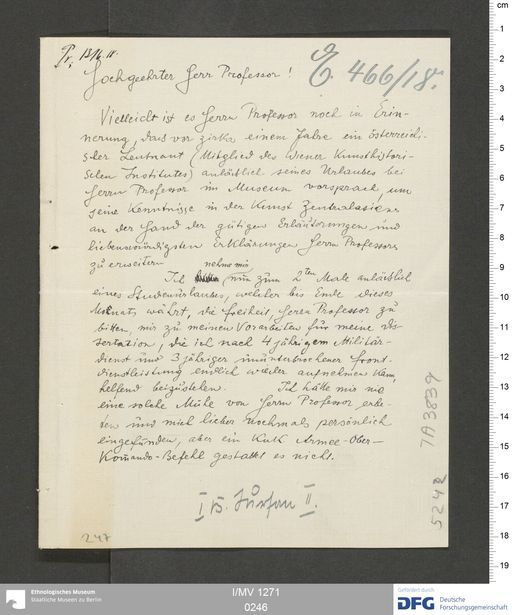 Pr. 13/6. 18.
E. 466/18.
Hochgeehrter Herr Professor!
Vielleicht ist es Herrn Professor noch in Erin-
nerung, dass vor zirka einem Jahre ein österreichi-
scher Leutnant (Mitglied des Wiener Kunsthistori-
schen Institutes) anlässlich seines Urlaubes bei
Herrn Professor im Museum vorsprach, um
seine Kenntnisse in der Kunst Zentralasiens
an der Hand der gütigen Erläuterungen und
liebenswürdigsten Erklärungen Herrn Professors
zu erweitern
nehme mir
Ich nun zum 2ten Male anlässlich
eines Studienurlaubes, welcher bis Ende dieses
Monats währt, die Freiheit, Herrn Professor zu
bitten, mir zu meinen Vorarbeiten für meine Dis-
sertation, die ich nach 4 jährigem Militär-
dienst und 3 jähriger ununterbrochener Front-
dienstleistung endlich wieder aufnehmen kann,
helfend beizustehen. Ich hätte mir nie
eine solche Mühe von Herrn Professor erbe-
ten und mich lieber nochmals persönlich
eingefunden, aber ein KuK Armee-Ober-
Kommando-Befehl gestattet es nicht.
I B. Turfan II.
247
7A3839
5242
Ethnologisches Museum
Staatliche Museen zu Berlin
I/MV 1271
0246
Gefördert durch
DFG Deutsche
Forschungsgemeinschaft
cm
1
2
3
4
5
6
7
8
9
10
11
12
13
14
15
16
17
18
19